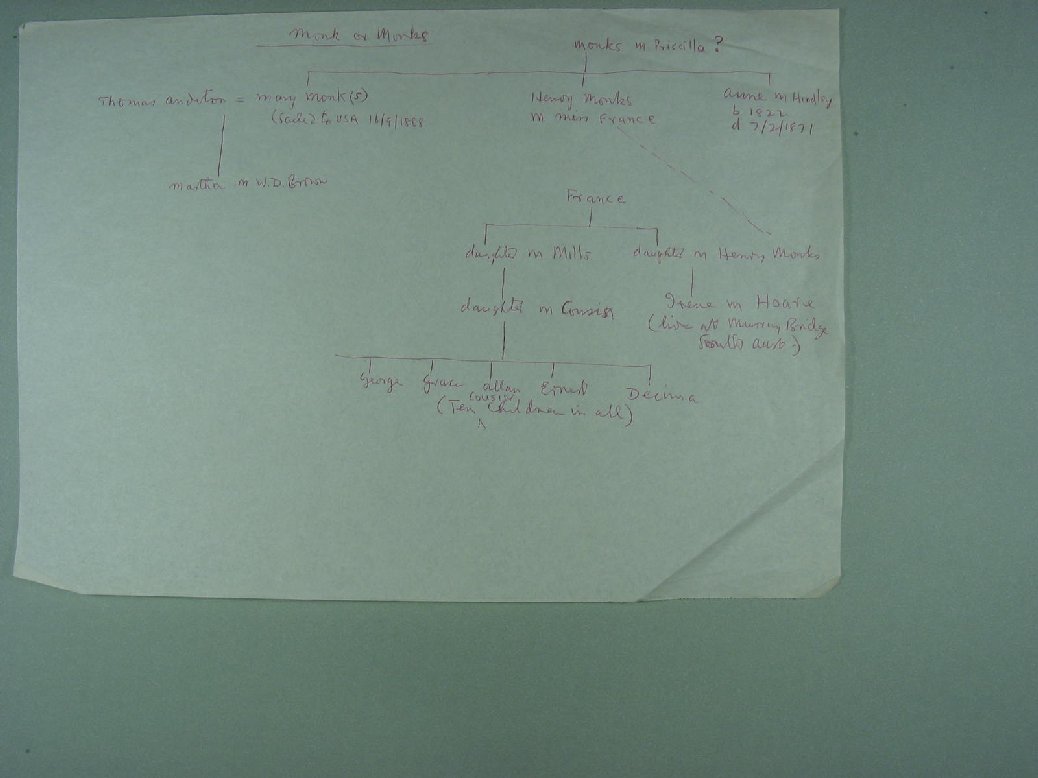 Monk or Monks
Monks m Priscilla ?
Thomas anderton = mary monk(s)
(Sailed to USA 16/9/1888
Henry Monks
m miss France
anne m Hindley
b 1822
d 7/2/1871
martha m W.D. Brown
France
daughter m Mills
daughter m Henry Monks
daughter m Cousins
Irene m Hoare
(live at Murray Bridge
South Aust.)
George Grace allan Ernest Decima
cousins
(Ten children in all)